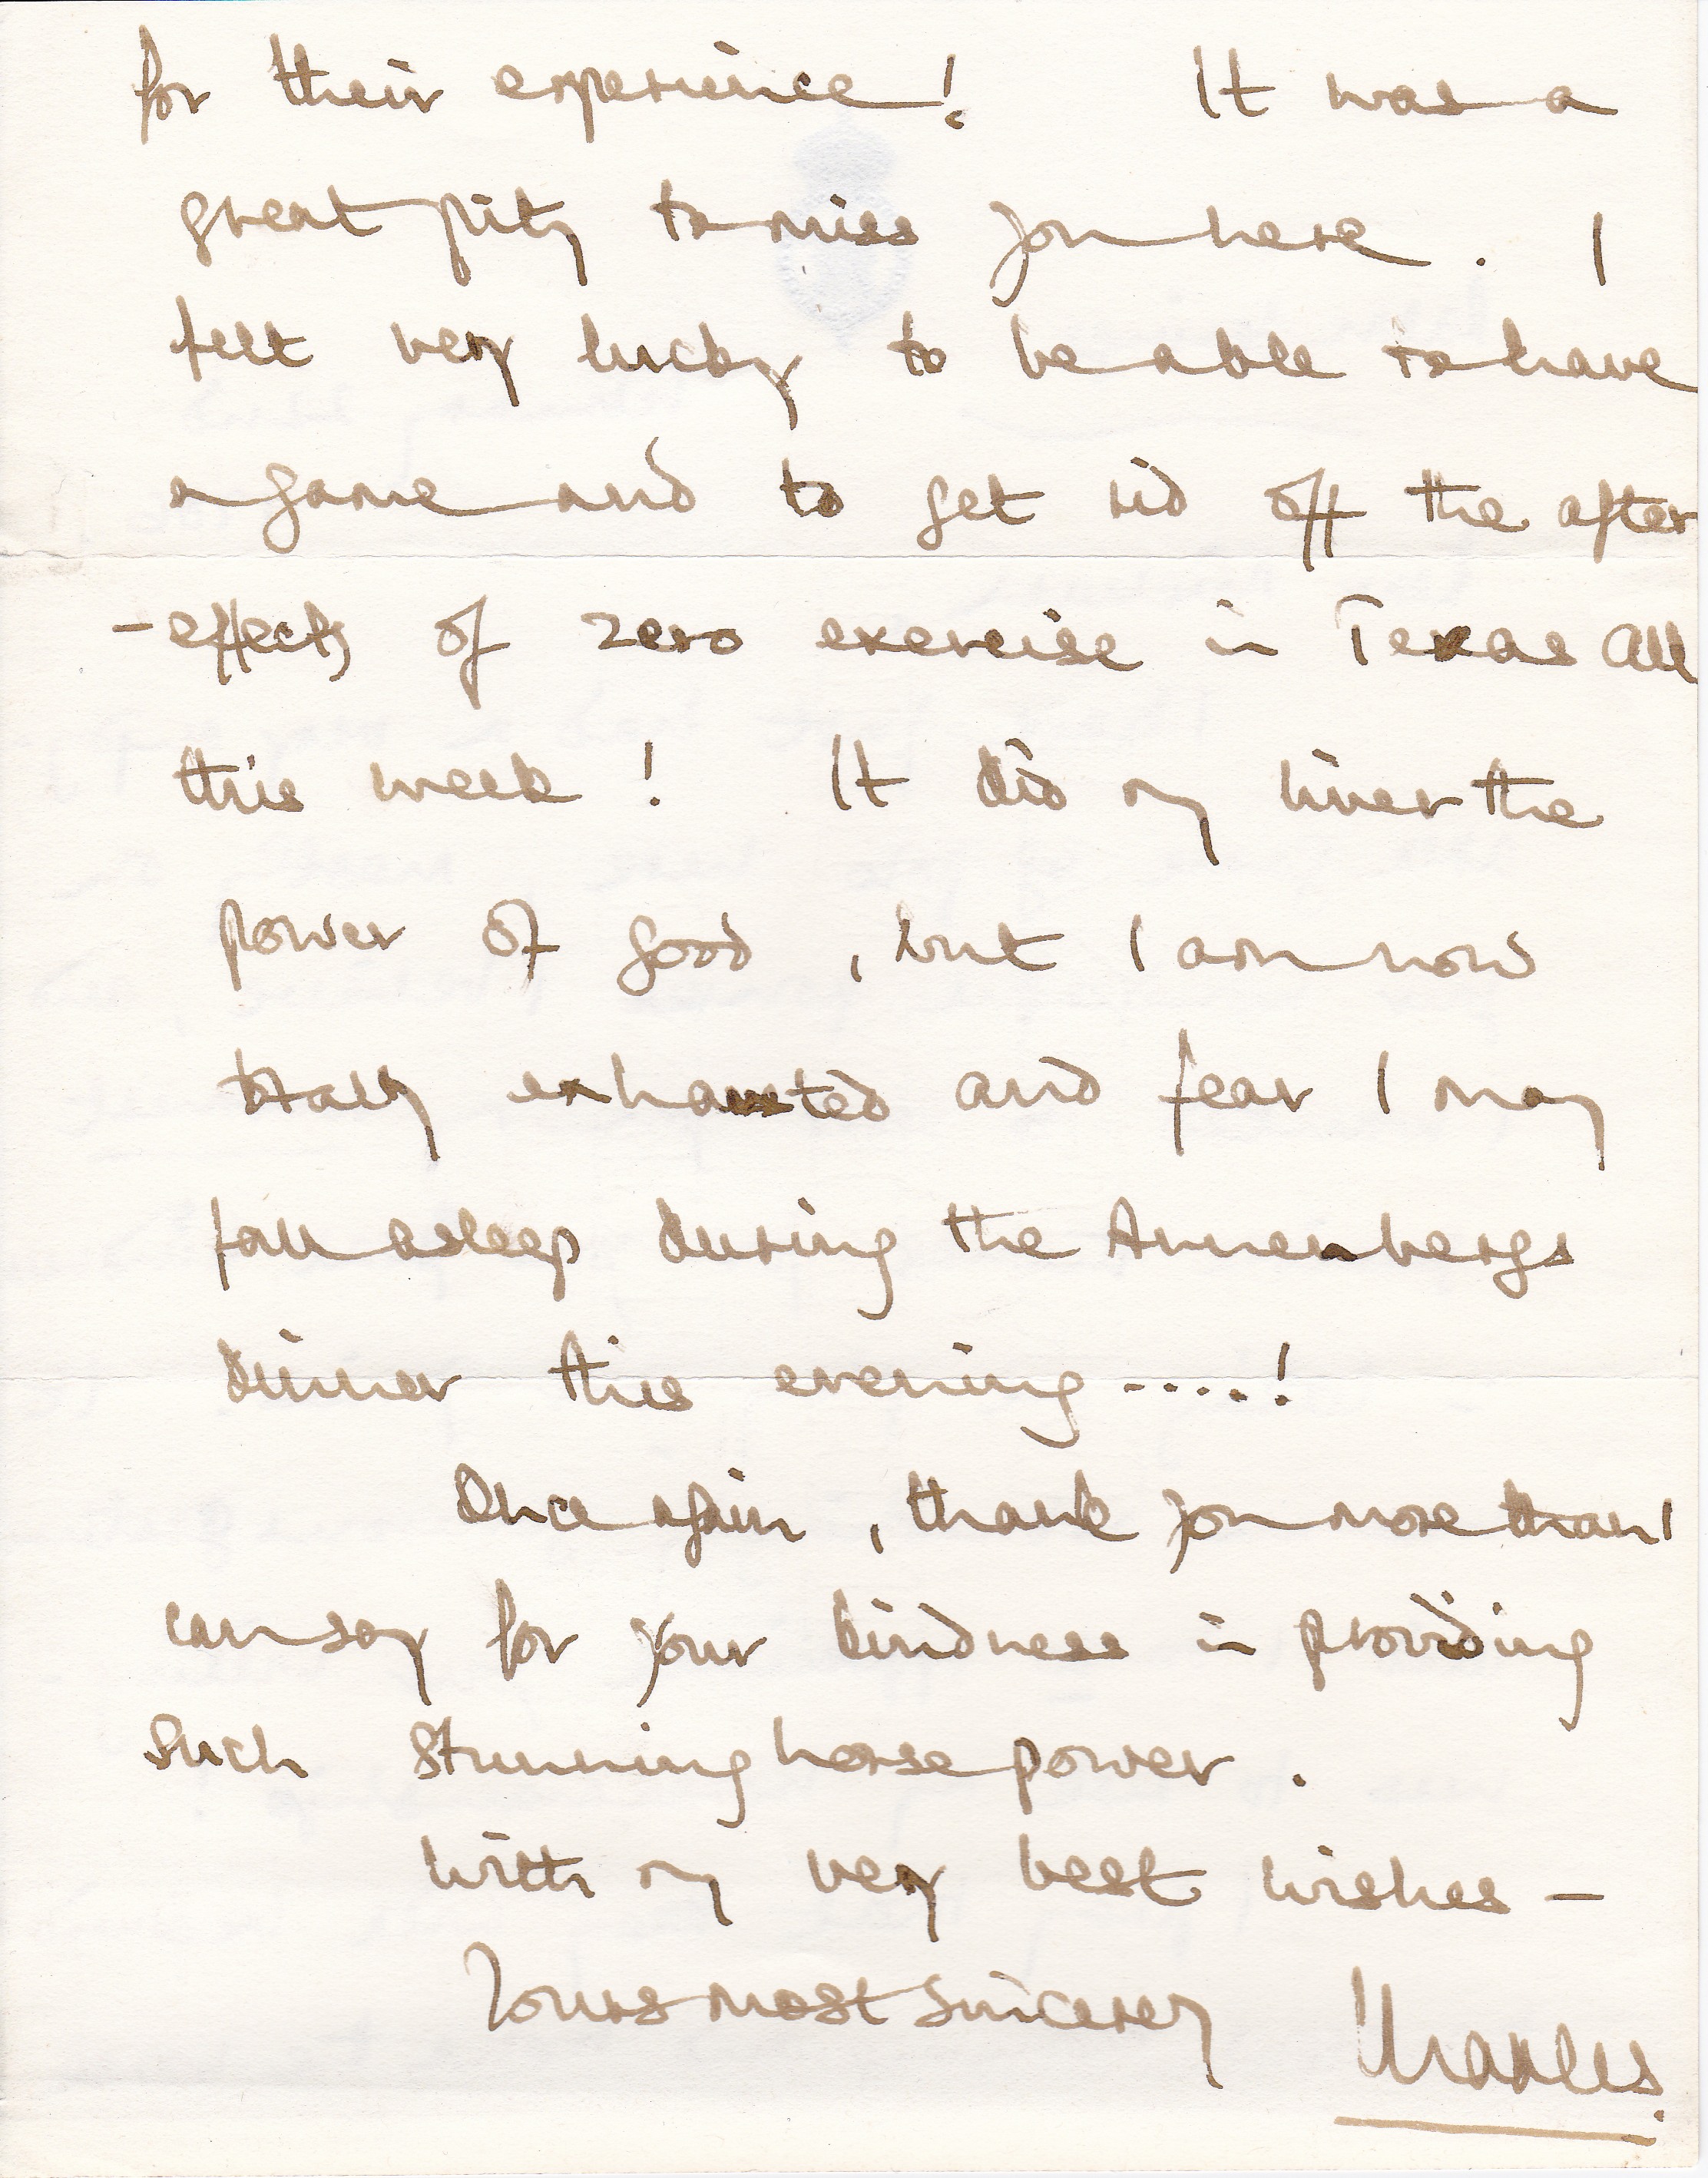 for their experience! It was a
great pity to miss you here. I
felt very lucky to be able to have
a game and to get rid off the after
-effects of zero exercise in Texas all
this week! It did my liver the
power of good, but I am now
totally exhausted and fear I may
fall asleep during the Annenbergs
dinner this evening ....!
Once again, thank you more than I
can say for your kindness in providing
such stunning horse power.
With my very best wishes -
Yours most sincerely Charles.